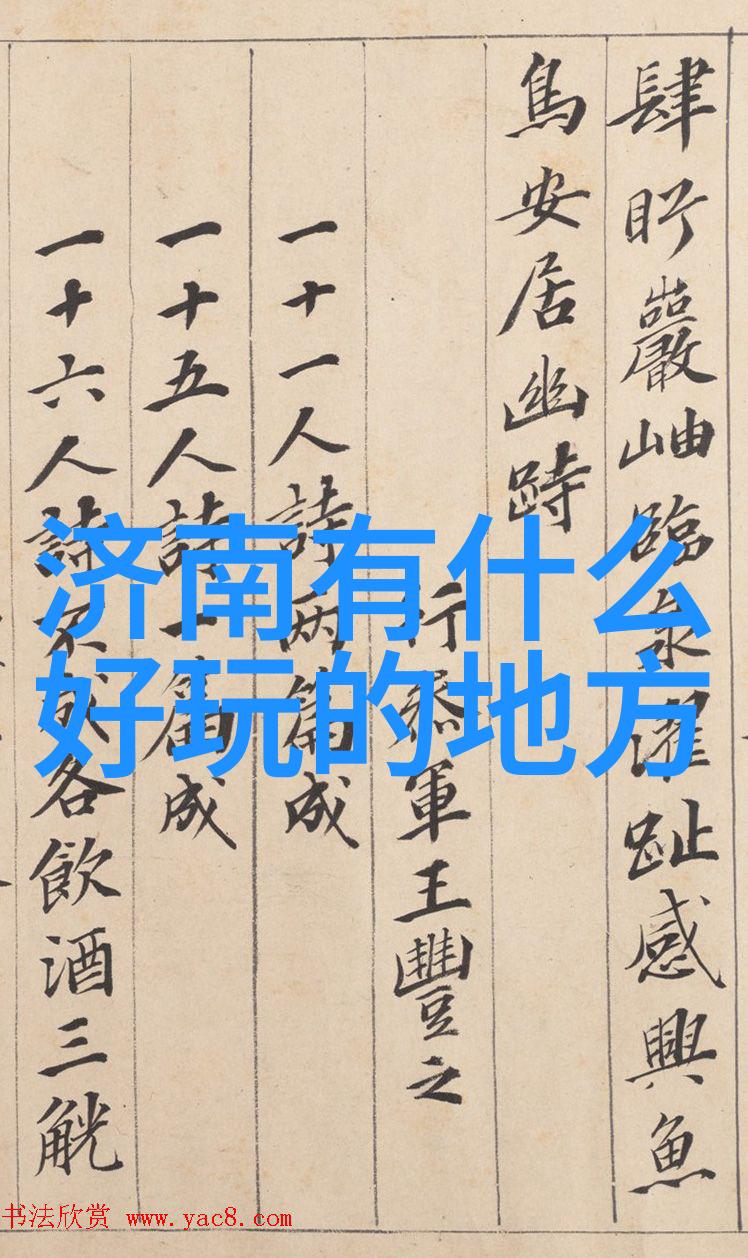 肆眄巖岫臨泉濯趾感興魚
鳥安居幽跱
行叅軍王豐之
一十一人詩兩篇成
一十五人詩一篇成
一十六人詩不成各飲酒三觥
济南有什么
好玩的地方
书法欣赏 www.yac8.com